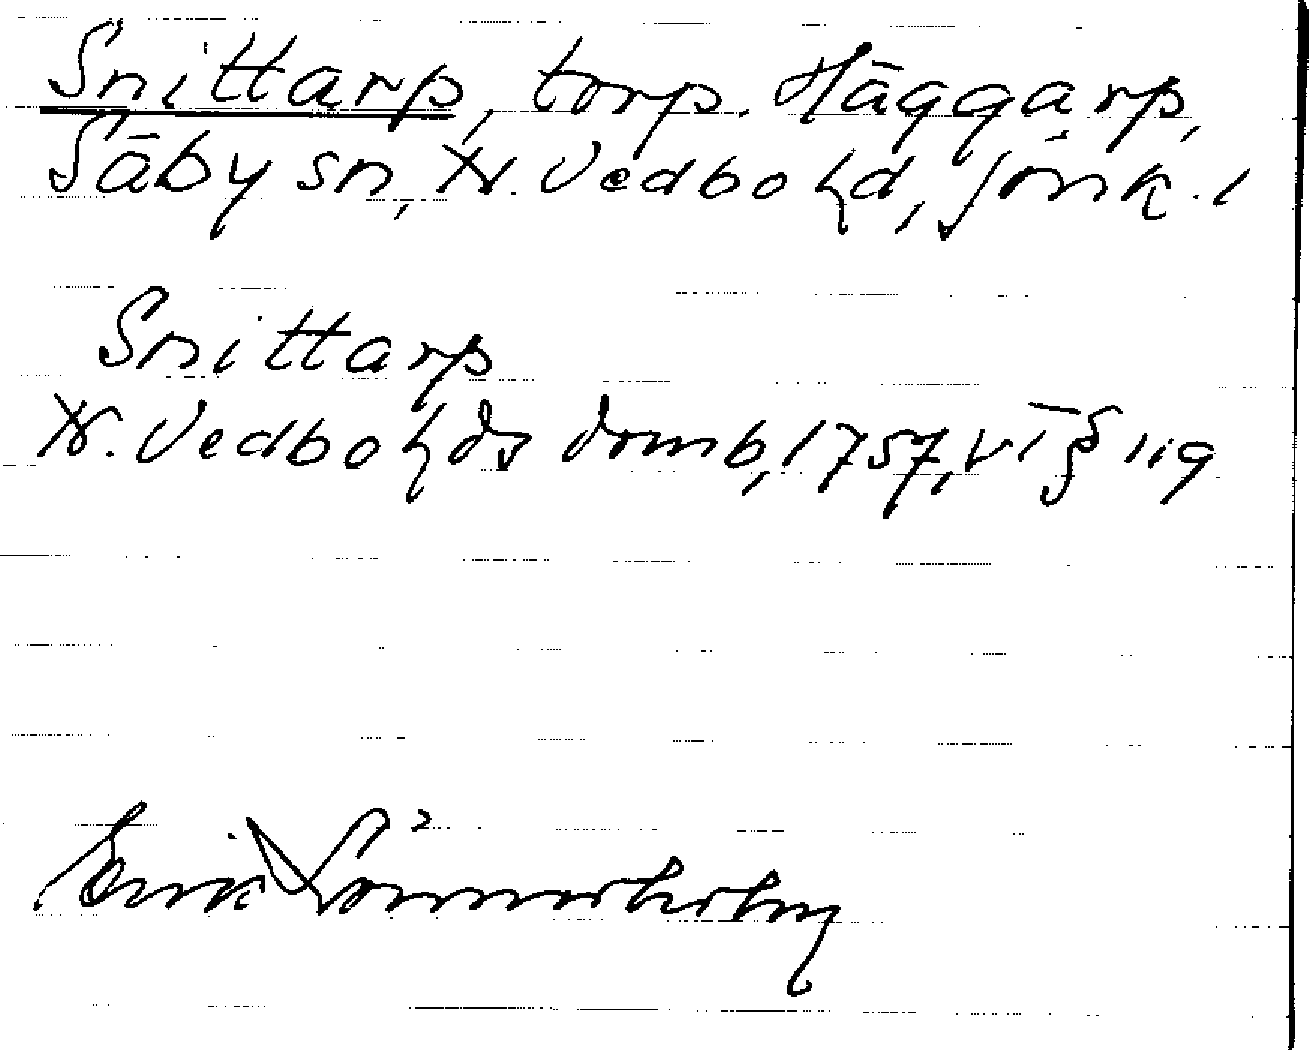 Snittarp, torp. Häggarp,
Säby sn, N. Vedbo hd, Jönk. l
Snittarp
N. Vedbo hds domb, 1757, VT § 119
Erik